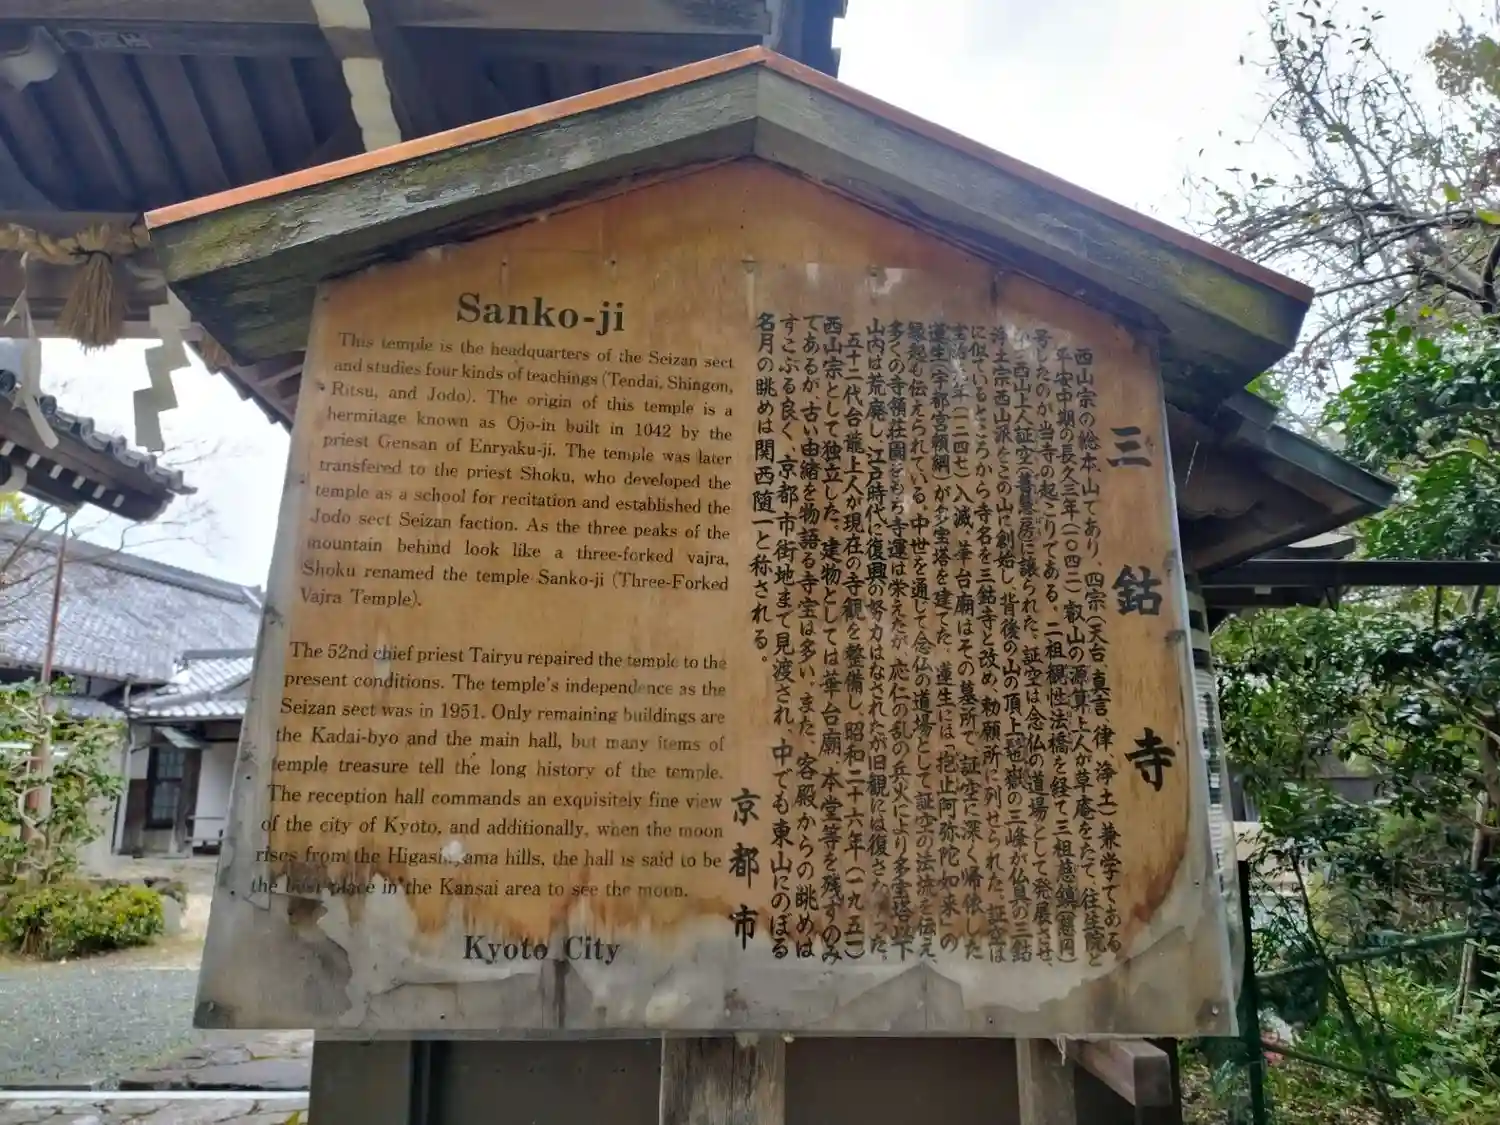 Sanko-ji
This temple is the headquarters of the Seizan sect
and studies four kinds of teachings (Tendai, Shingon,
Ritsu, and Jodo). The origin of this temple is a
hermitage known as Ojo-in built in 1042 by the
priest Gensan of Enryaku-ji. The temple was later
transfered to the priest Shoku, who developed the
temple as a school for recitation and established the
Jodo sect Seizan faction. As the three peaks of the
mountain behind look like a three-forked vajra,
Shoku renamed the temple Sanko-ji (Three-Forked
Vajra Temple).
The 52nd chief priest Tairyu repaired the temple to the
present conditions. The temple's independence as the
Seizan sect was in 1951. Only remaining buildings are
the Kadai-byo and the main hall, but many items of
temple treasure tell the long history of the temple.
The reception hall commands an exquisitely fine view
of the city of Kyoto, and additionally, when the moon
rises from the Higashiyama hills, the hall is said to be
the best place in the Kansai area to see the moon.
Kyoto City
三鈷寺
西山宗の総本山であり、四宗(天台、真言、律、浄土)兼学である。
平安中期の長久三年(一〇四二)叡山の源算上人が草庵をたて、往生院と
号したのが当寺の起こりである。二祖観性法橋を経て三祖慈鎮(慈円)
西山上人証空(善慧房)に譲られた。証空は念仏の道場として発展させ、
浄土宗西山派をこの山に創始し、背後の山の頂上
の三峰が仏具の三鈷
に似ているところから寺名を三鈷寺と改め、勅願所に列せられた。証空は
年(一二四七)入滅、華台廟はその墓所で、証空に深く帰依した
蓮生(宇都宮頼綱)が多宝塔を建てた。蓮生には「抱止阿弥陀如来」の
縁起も伝えられている。中世を通じて念仏の道場として証空の法流を伝え、
多くの寺領荘園をもち寺運は栄えたが、応仁の乱の兵火により多宝塔以下
山内は荒廃し、江戸時代に復興の努力はなされたが旧観には復さなかった。
五十二代台龍上人が現在の寺観を整備し、昭和二十六年(一九五一)
西山宗として独立した。建物としては華台廟、本堂等を残すのみ
であるが、古い由緒を物語る寺宝は多い。また、客殿からの眺めは
すこぶる良く、京都市街地まで見渡され、中でも東山にのぼる
名月の眺めは関西随一と称される。
京都市